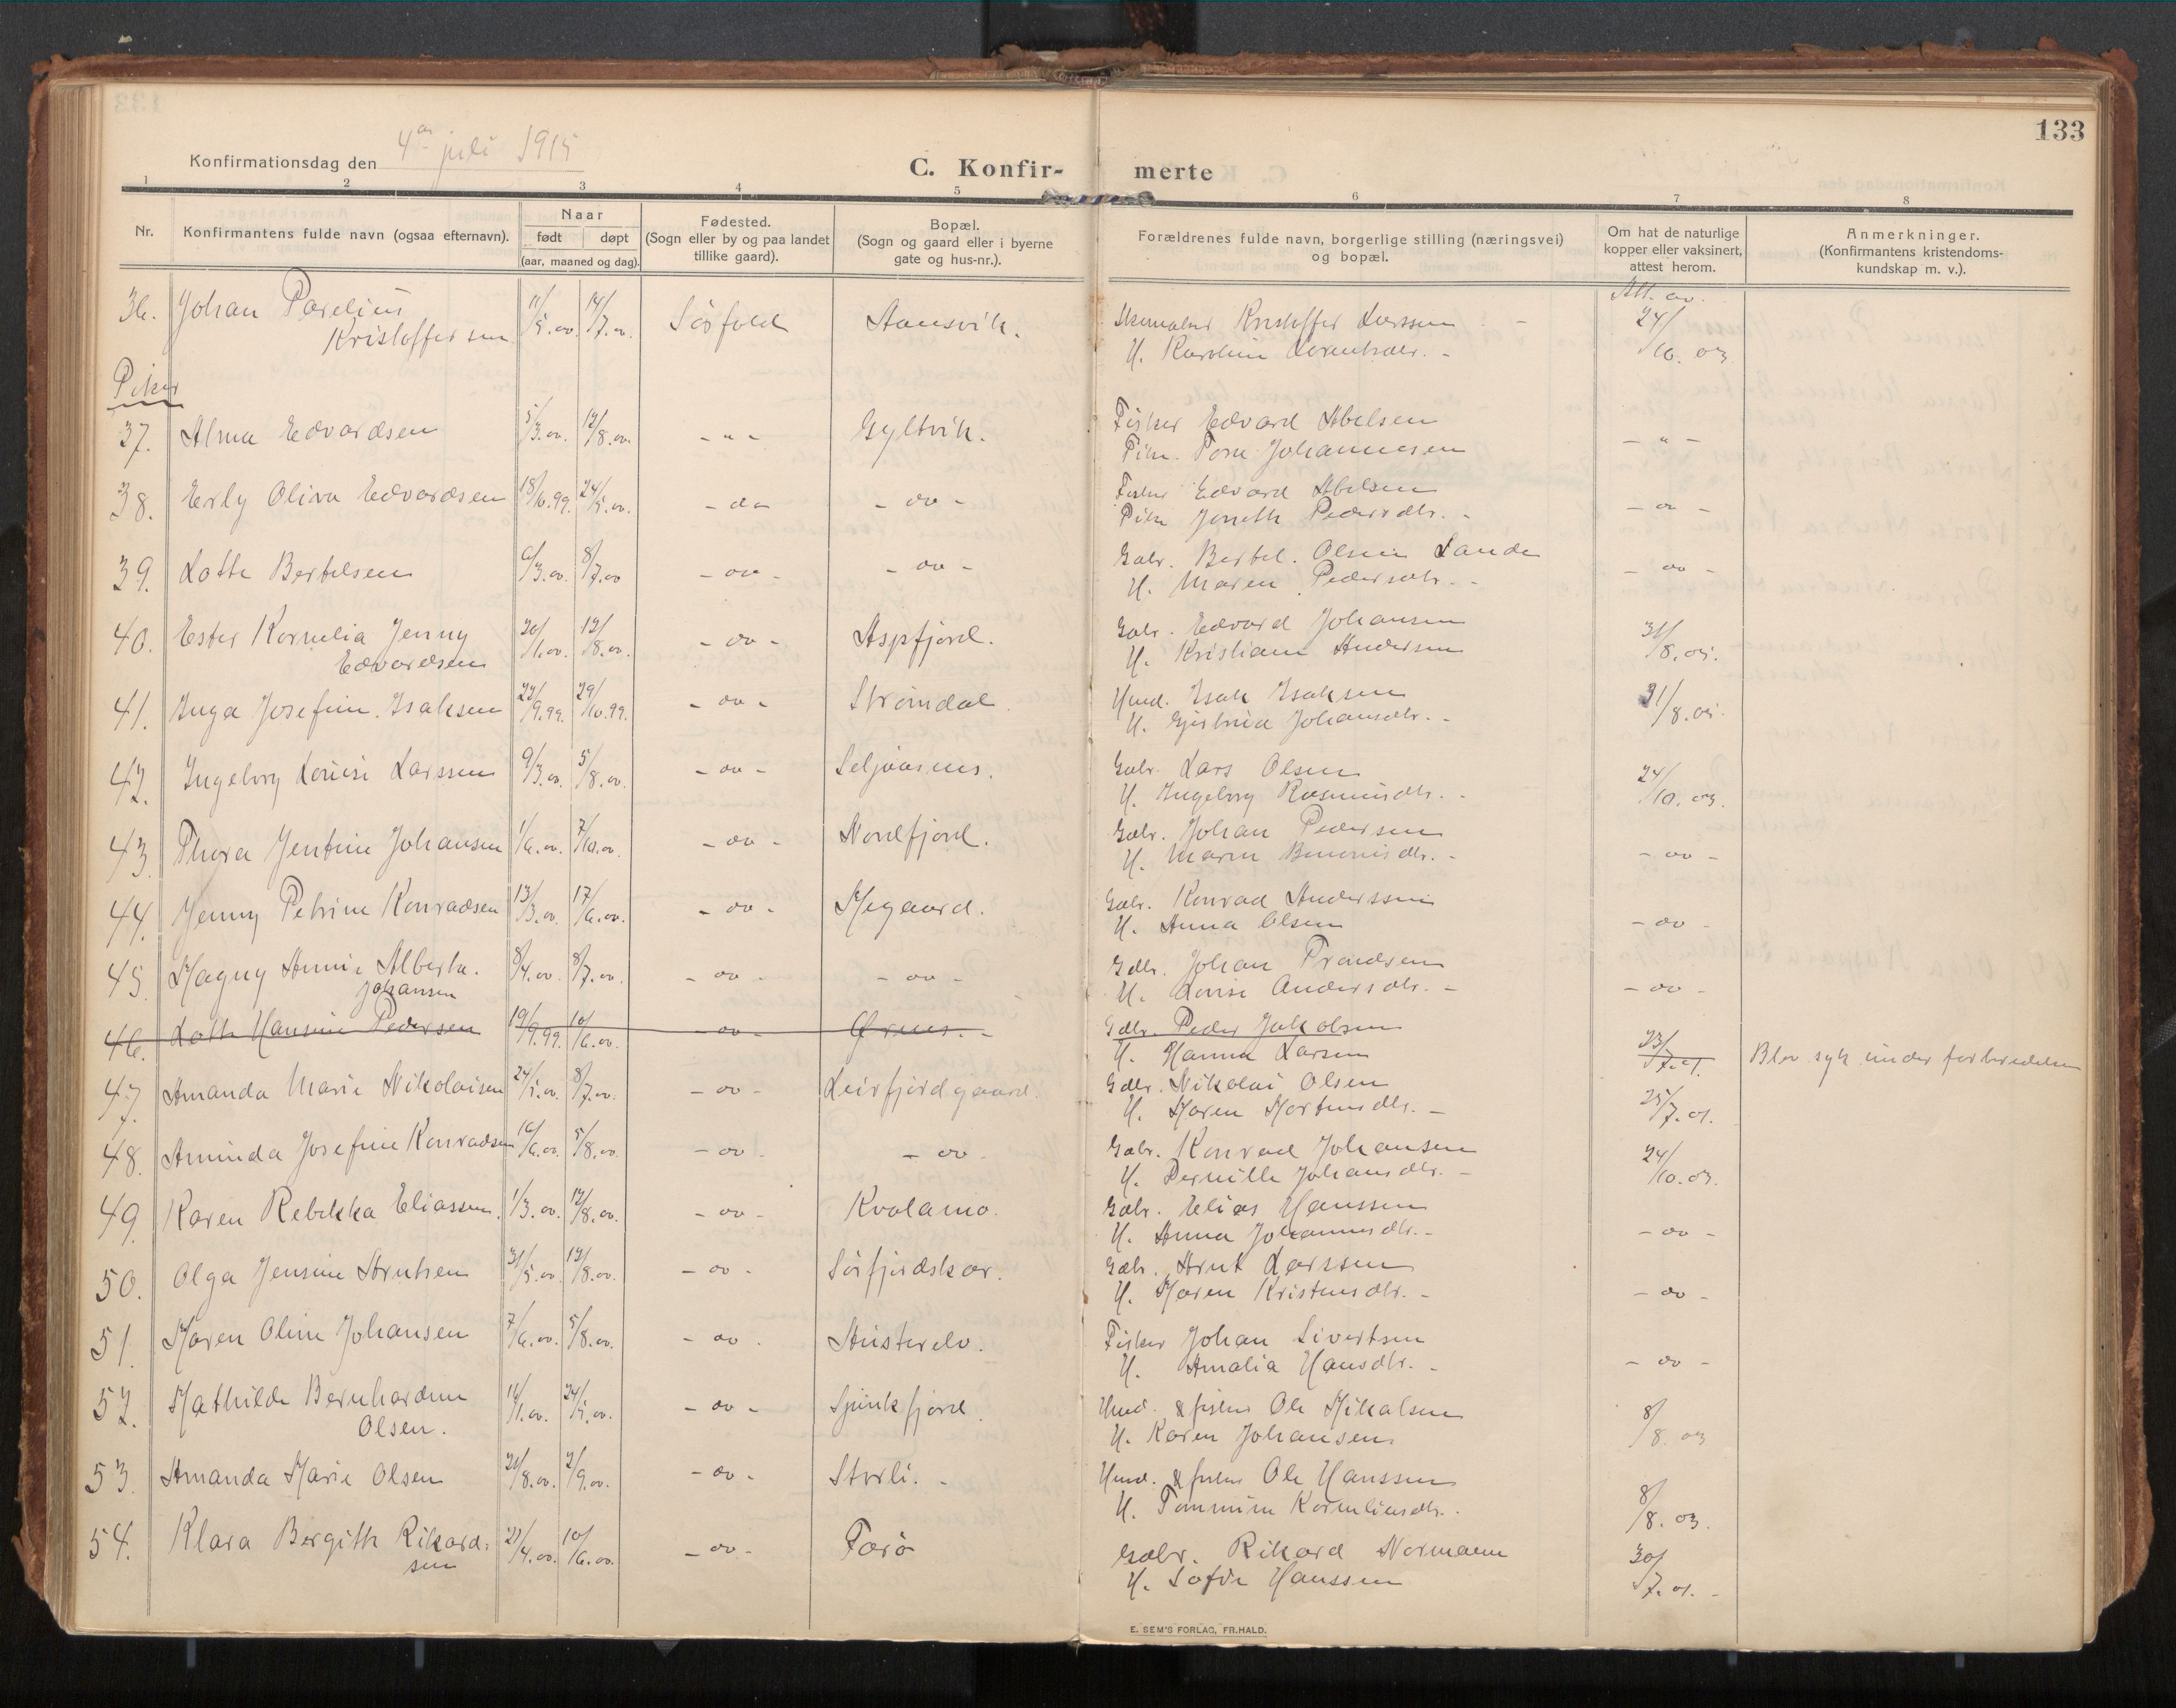 133
Konfirmationsdag den 4de juli 1915
C. Konfir- merte
1 2 3 4 5 6 7 8
Nr.
Konfirmantens fulde navn (ogsaa efternavn).
Naar
født døpt
(aar, maaned og dag).
Fødested.
(Sogn eller by og paa landet
tillike gaard).
Bopæl.
(Sogn og gaard eller i byerne
gate og hus-nr.).
Forældrenes fulde navn, borgerlige stilling (næringsvei)
og bopæl.
Om hat de naturlige
kopper eller vaksinert,
attest herom.
Anmerkninger.
(Konfirmantens kristendoms-
kundskap m. v.).
36. Johan Parelius Kristoffersen 11/5.00. 14/7.00. Sörfold Aansvik. Kristoffer Larssen Att. av. 24/10.03
H. Karoline Lorentsdtr. -
Piker
37. Alma Edvardsen 5/3.00. 12/8.00. - " - Gyltvik. Fisker Edvard Abelsen - " -
Pike. Tora Johannesen
38. Erly Oliva Edvardsen 18/10.99. 24/5.00. - do - - oo - Fisker Edvard Abelsen - oo -
Pike Jonette Pedersdtr. -
39. Lotte Bertelsen 6/3.00. 8/7.00 - oo - - oo - Gbr. Bertel Olsen Lande - oo -
H. Maren Pedersdtr. -
40. Ester Kornelia Jenny Edvardsen 20/1.00. 12/8.00. - oo - Aspfjord. Gbr. Edvard Johansen 31/8.05.
H. Kristiane Andersen
41. Inga Josefine Isaksen 22/9.99. 29/10.99. - oo - Strömdal. Hmd. Isak Isaksen 31/8.05.
H. Gjertrud Johansdtr. -
42. Ingeborg Louise Larssen 9/3.00. 5/8.00. - oo - Seljåsnes. Gbr. Lars Olsen 24/10.03.
H. Ingeborg Rasmusdtr. -
43. Thora Jentine Johansen 1/6.00. 7/10.00. - oo - Nordfjord. Gbr. Johan Pedersen - oo -
H. Maren Benonisdtr. -
44. Jenny Petrine Konradsen 13/3.00. 17/6.00. - oo - Megaard. Gbr. Konrad Anderssen - oo -
H. Anna Olsen
45. Magny Annie Alberta Johansen 8/4.00. 8/7.00. - oo - - oo - Gbr. Johan Trondsen - oo -
H. Lovise Andersdtr. -
46. Lotte Hansine Pedersen 19/9.99. 10/6.00. - oo - Ørnes. - Gdbr. Peder Jakobsen 23/7.01. Blev syk under forberedelsen
H. Hanna Larsen
47. Amanda Marie Nikolaisen 24/5.00. 8/7.00. - oo - Leirfjordgaard. Gdbr. Nikolai Olsen 25/7.01.
H. Maren Mortensdtr. -
48. Aminda Josefine Konradsen 16/6.00. 5/8.00. - oo - - oo - Gbr. Konrad Johansen 24/10.03.
H. Pernille Johansdtr. -
49. Karen Rebekka Eliassen. 1/3.00. 12/8.00. - oo - Kvalamo. Gbr. Elias Hanssen - oo -
H. Anna Johannesdtr. -
50. Olga Jensine Arntsen 31/5.00. 12/8.00. - oo - Sörfjordskar. Gbr. Arnt Larssen - oo -
H. Maren Kristensdtr. -
51. Maren Oline Johansen 7/6.00. 5/8.00. - oo - Austerelv. Fisker Johan Sivertsen - oo -
H. Amalia Hansdtr. -
52. Mathilde Bernhardine Olsen. 16/1.00. 24/5.00. - oo - Sjunkfjord. Hmd. & fisker Ole Mikalsen 8/8.03
H. Karen Johansen.
53. Amanda Marie Olsen 21/8.00. 2/9.00. - oo - Storli. - Hmd. & fisker Ole Hanssen 8/8.03.
H. Tommine Korneliusdtr.
54. Klara Bergitte Rikardsen 21/4.00. 10/6.00. - oo - Farö Gdbr. Rikard Normann 30/7.01. -
H. Sofie Hanssen
E. SEM'S FORLAG, FR.HALD.